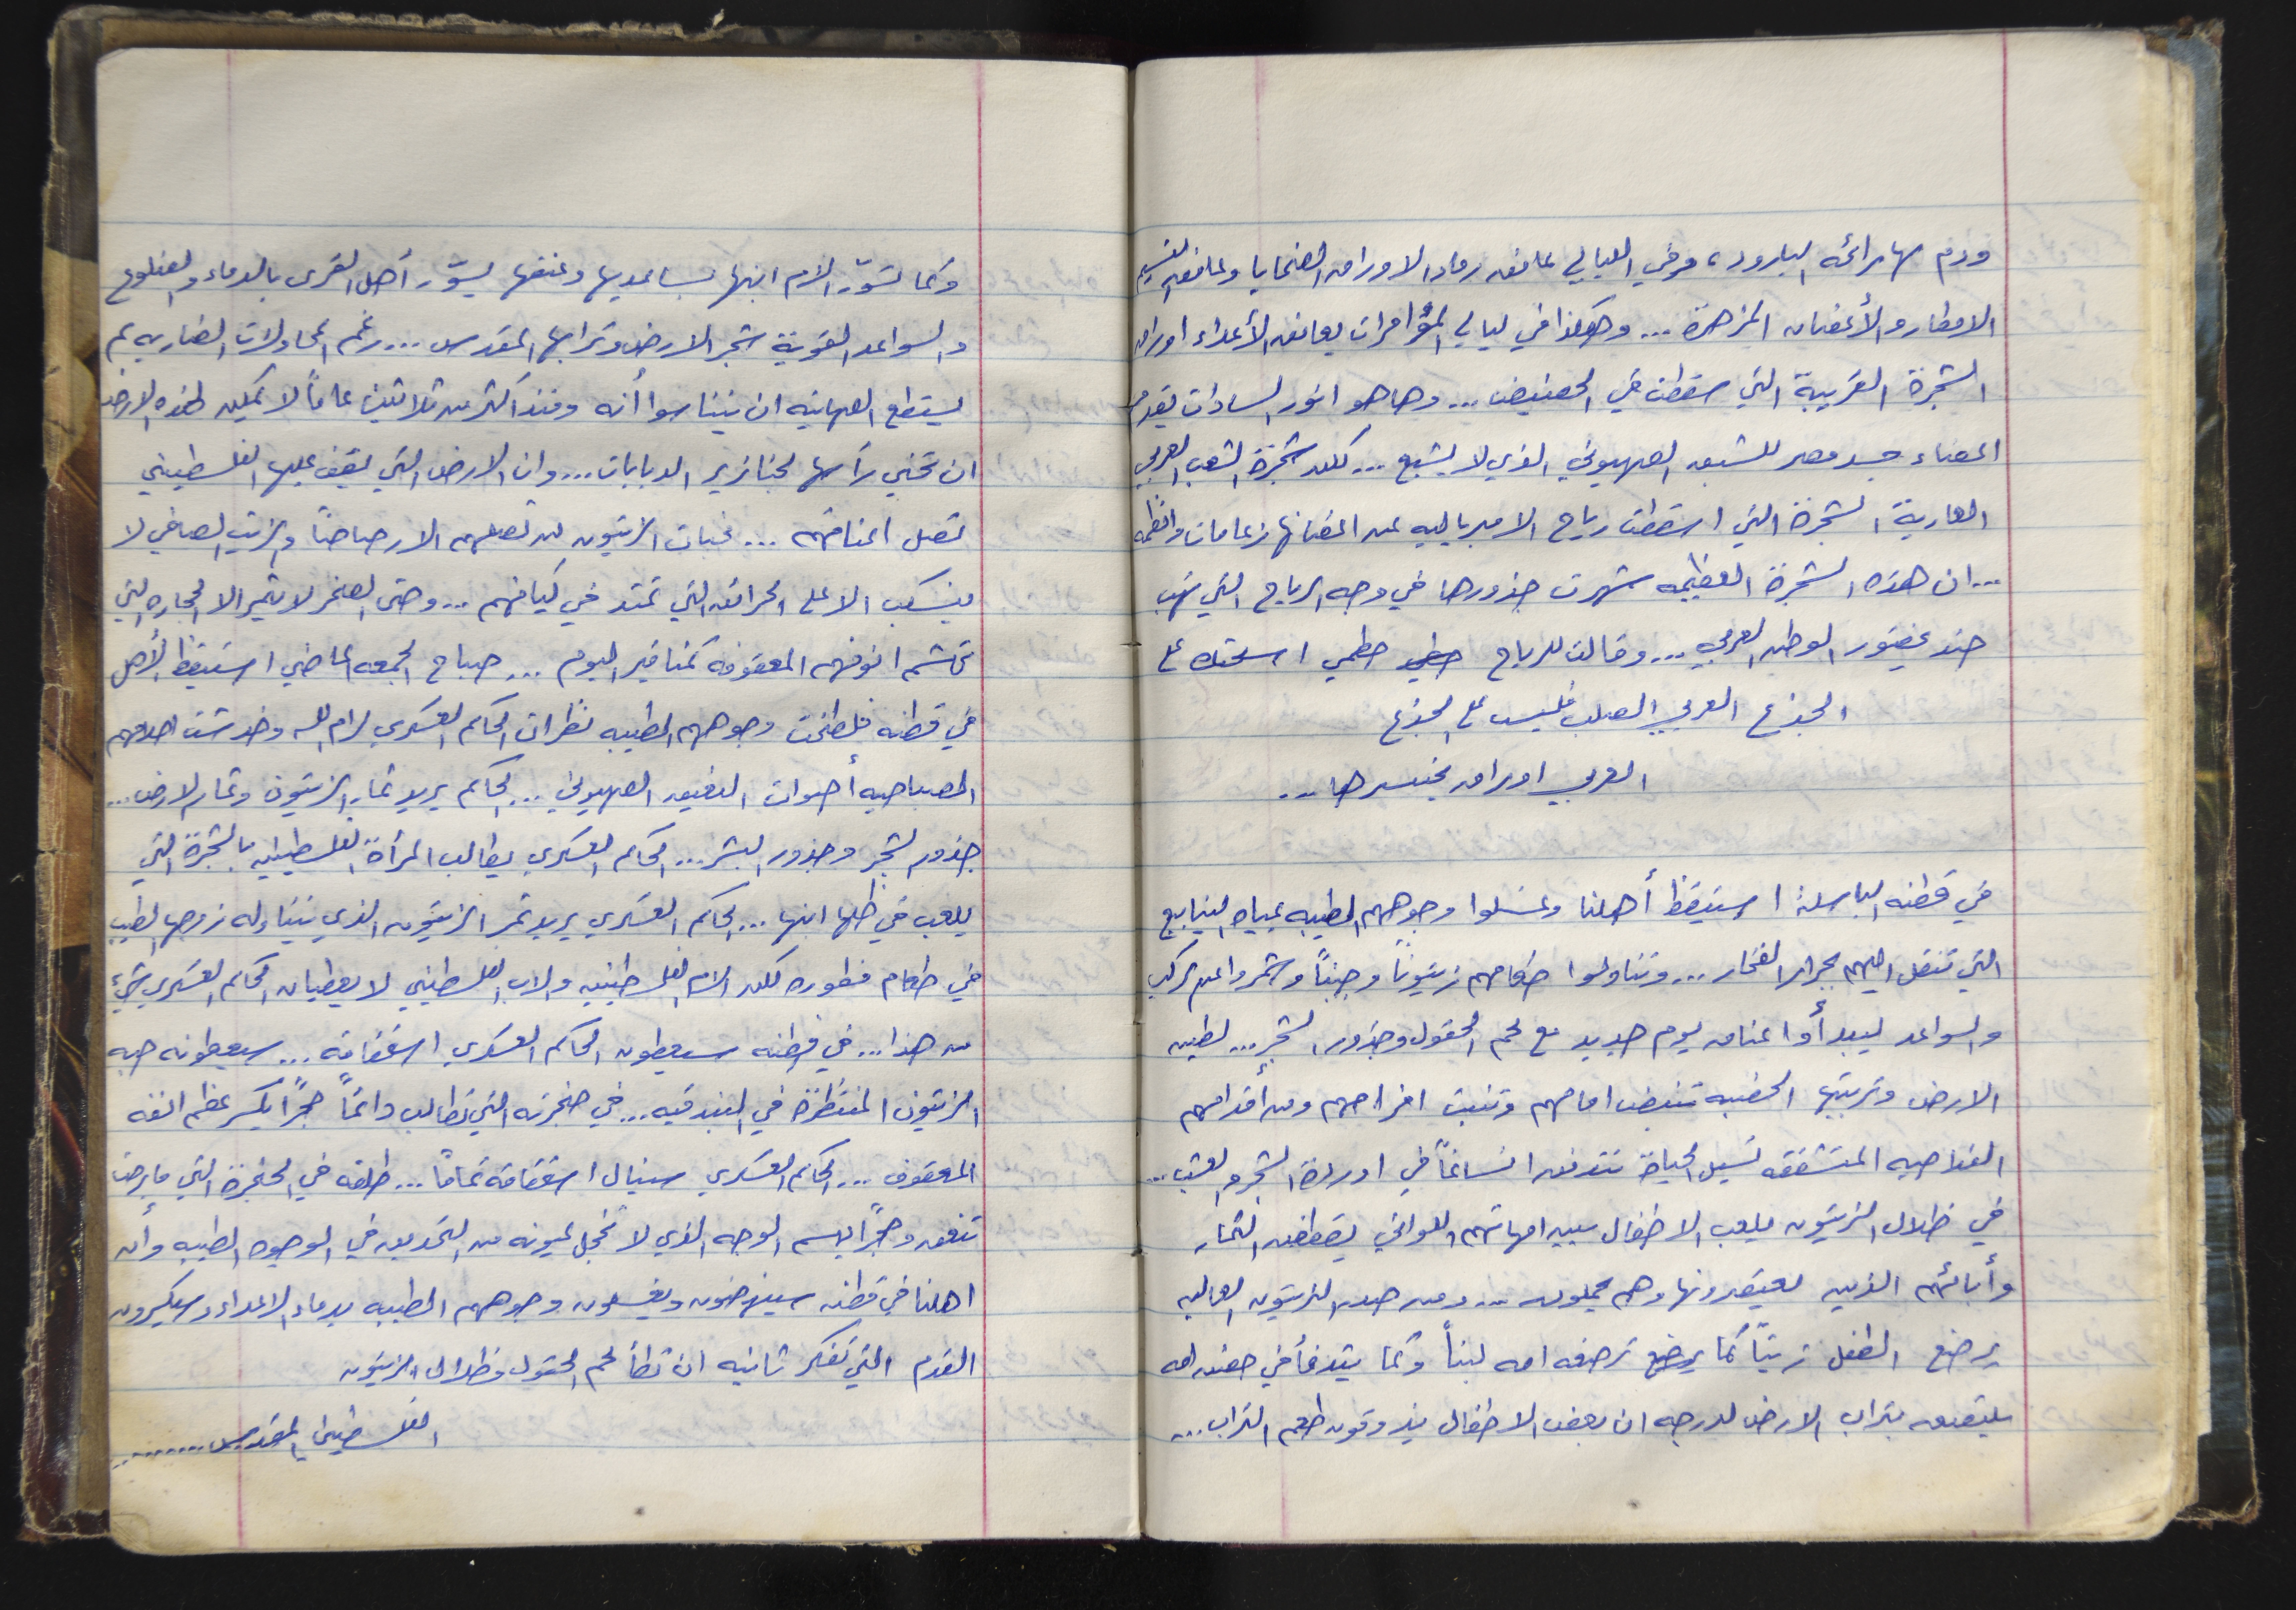 ودم لها رائحه البارود، وفي الليالي عانقه رماد الاوراق الضحايا وعانقه النسيم
الامطار و الأغصان المزهرة ... وهكذا في ليالي المؤامرات يعانقه الأعداء اوراق
الشجرة الغريبة التي سقطت في الحضيض ... وها هو انور السادات يقدم
اعضاء جسد مصر للشبق الصهيوني الذي لا يشبع ... لكن شجرة الشعب العربي
العارية الشجرة التي اسقطت رياح الامبرياليه عن اغصانها زعامات وانظمه
... ان هذه الشجرة العظيمه شهرت جذورها في وجه الرياح التي تهب
ضد عصفور الوطن العربي ... وقالت للرياح حطمي اسنانك على
الجذع العربي الصلب فليس على الجذع
العربي اوراق يخسرها ...
في قطنه الباسلة استيقظ أهلنا وغسلوا وجوههم الطيبه بمياه الينابيع
التي تنقل اليهم بجرار الفخار ... وتناولوا طعامهم زيتوناً وجبناً وشمروا عن الركب
والسواعد ليبدأوا عناق يوم جديد مع لحم الحقول وجذور الشجر ... لطين
الارض وتربتها الخصبه تنبض امامهم وتنبت افراحهم ومن أقدامهم
القداصيه المتشققه تسيل الحياة تتدفق انساغاً في اوردة الشجر والعشب ...
في ظلال الزيتون يلعب الاطفال بين امهاتهم اللواتي يقطفن الثمار
وأبائهم الذين يعتصرونها وهم يحملون ... ومن صدر الزيتون العاليه
يرضع الطفل زيتاً كما ترضعه امه لبناً وكما يتدفأ في حضن امه
يلتصق بتراب الارض لدرجه ان بعض الاطفال يذوقون طعم التراب ...
وكما تسوّر الام ابنها بساعديها وعنقها يسوّر أهل القرى بالدماء والضلوع
والسواعد القوية شجر الارض وترابها المقدس ... رغم المحاولات الضاريه لم
يستطع الصهاينه ان يتناسوا أنه ومنذ اكثر من ثلاثين عاماً لا يمكن لهذه الارض
ان تحني رأسها لجنازير الدبابات ... وان الارض التي يقف عليها الفلسطيني
تصل اعناقهم ... غابات الزيتون لن تعطيهم الا رصاصاً والزيت الصافي لا
ينسكب الا على الحرائق التي تمتد في كيانهم ... وحتى الصخر لا يثمر الا الحجاره التي
تهشم انوفهم المعقوفه كمناقير البوم ... صباح الجمعه الماضي استيقظ الأهل
في قطنه فلطخت وجوههم الطيبه نظرات الحاكم العسكري لرام الله وخدشت احلامهم
الصباحيه أصوات النعيق الصهيوني ... الحاكم يريد ثمار الزيتون وثمار الارض ...
جذور الشجر وجذور البشر ... الحاكم العسكري يطالب المرأة الفلسطينيه بالشجرة التي
يلعب في ظلها ابنها ... الحاكم العسكري يريد ثمر الزيتون الذي يتناوله زوجها الطيب
في طعام فطوره لكن الام الفلسطينيه والاب الفلسطيني لا يعطيان الحاكم العسكري شيئ
من هذا ... في قطنه سيعطون الحاكم العسكري استحقاقه ... سيعطونه حبه
الزيتون المنتظرة في البندقيه ... في حنجرته التي تطالب دائماً حجراً يكسر عظم انفه
المعقوف ... الحاكم العسكري سينال استحقاقه تماماً ... طلقه في الحنجرة التي ما برحت
تنعق وحجراً يسم الوجه الذي لا تخجل عيونه من التحديق في الوجوه الطيبه وأن
اهلنا في قطنه سينهضون ويغسلون وجوههم الطيبه بدماء الاعداء وسيكسرون
القدم التي تفكر ثانيه ان تطأ لحم الحقول وظلال الزيتون
الفلسطيني المقدس .......